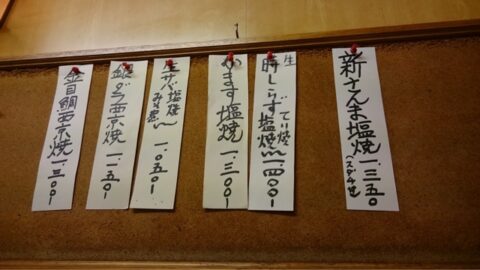 新さんま塩焼 一、三五〇
(スダチ付
生 てり焼
時しらず塩焼 一、四〇〇
かます塩焼 一、三〇〇
生サバ塩焼
みそ煮 一、〇五〇
銀ダラ西京焼 一、五〇
金目鯛西京焼 一、三〇〇